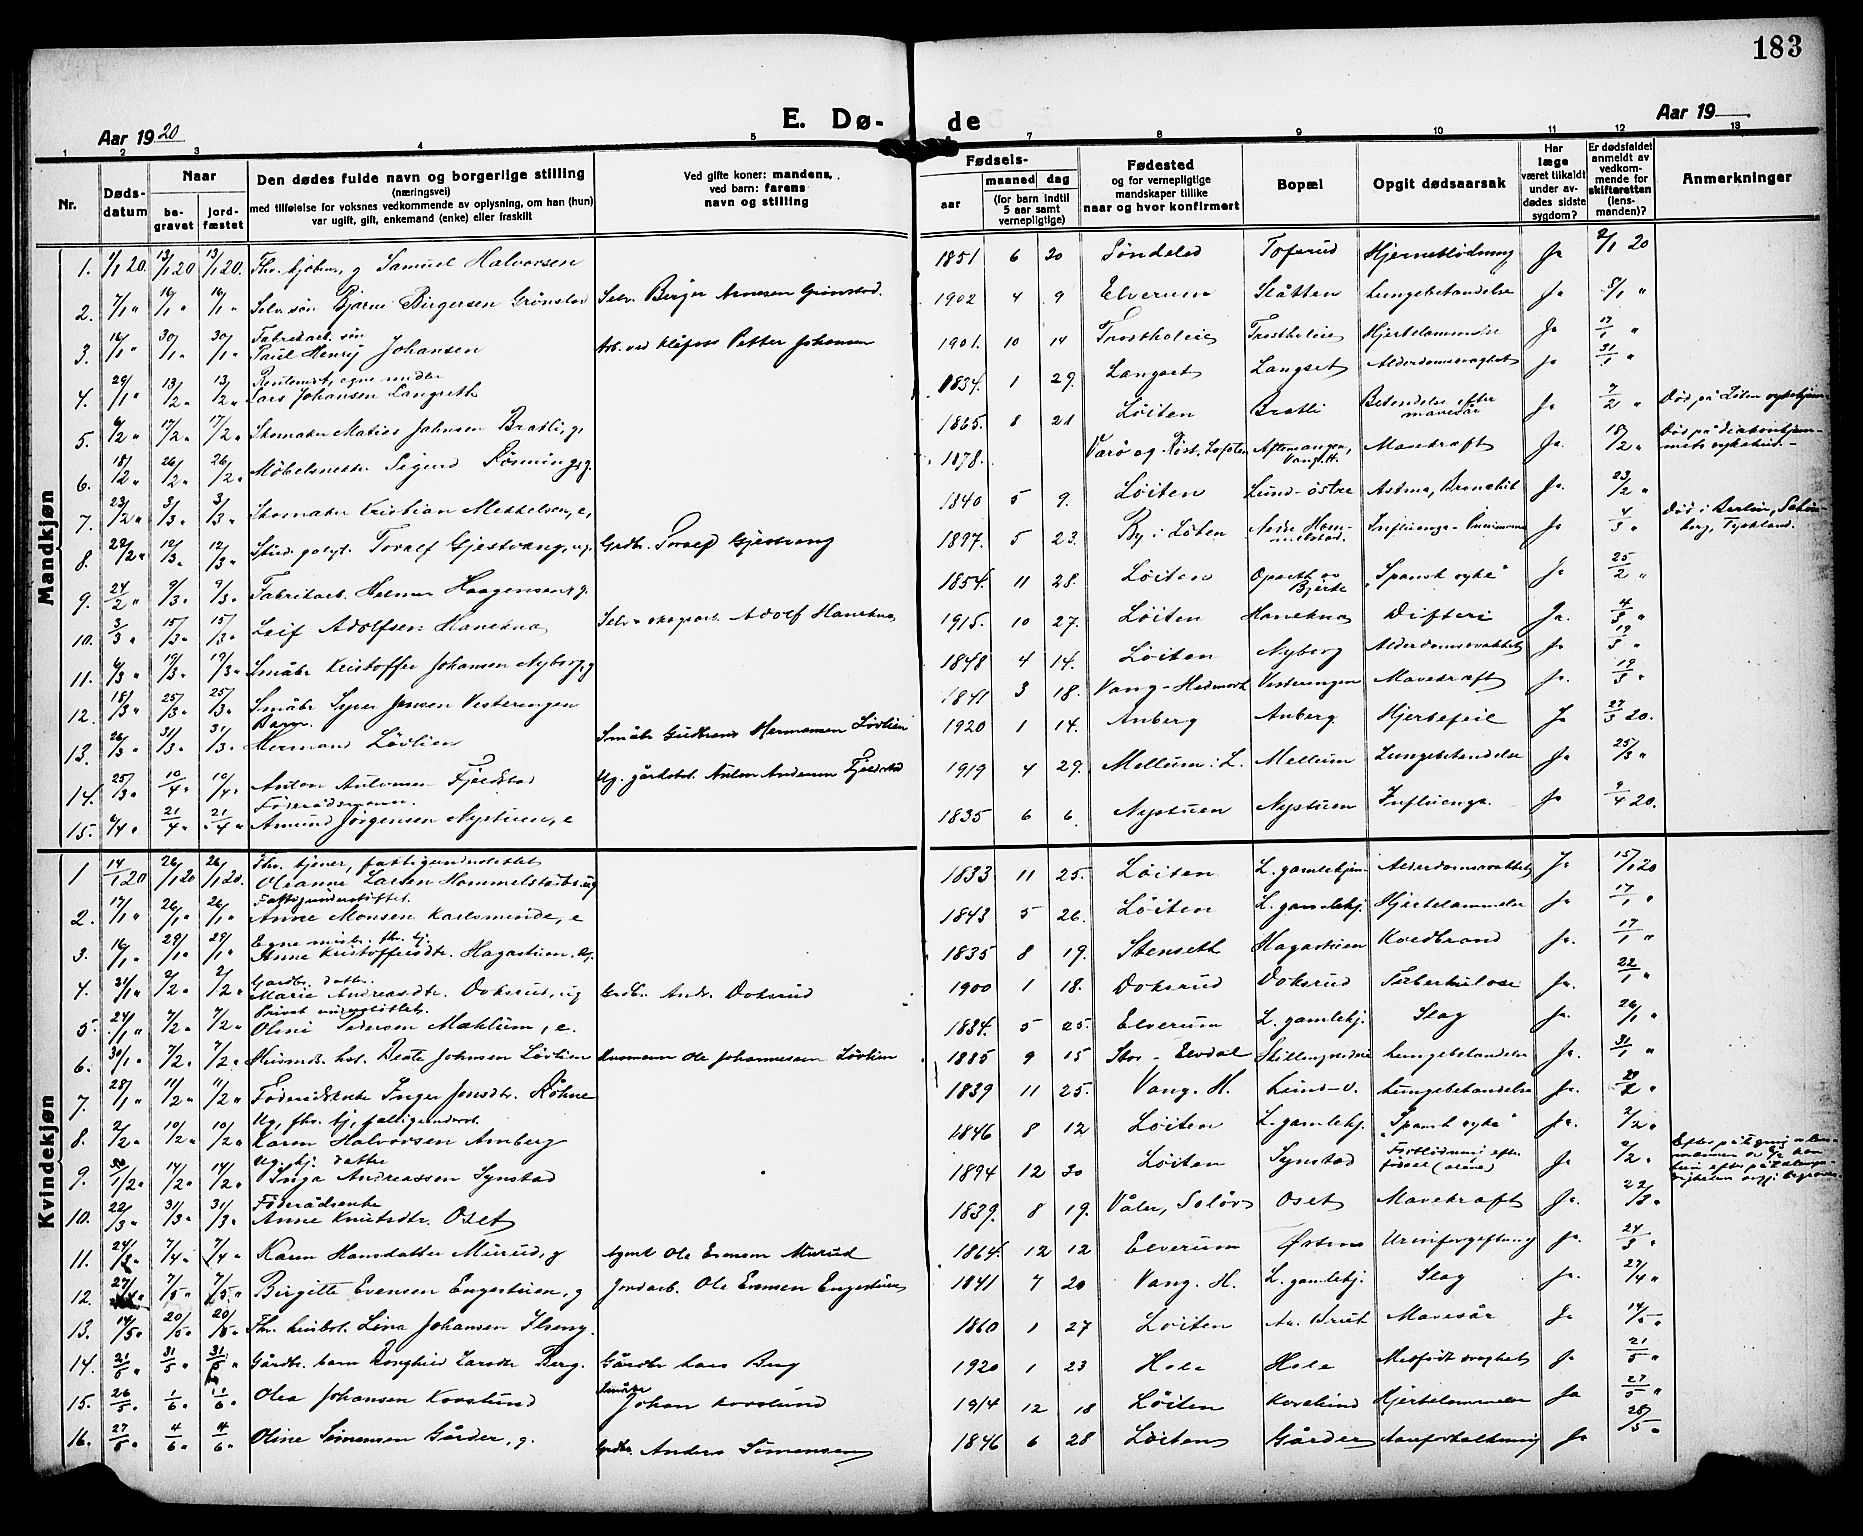 183
E. Dø- de
Aar 19 20
Aar 19
1 2 3 4 5 7 8 9 10 11 12 13
Nr.
Døds-
datum
Naar
be-
gravet
jord-
fæstet
Den dødes fulde navn og borgerlige stilling
(næringsvei)
med tilføielse for voksnes vedkommende av oplysning, om han (hun)
var ugift, gift, enkemand (enke) eller fraskilt
Ved gifte koner: mandens,
ved barn: farens
navn og stilling
Fødsels-
aar
maaned
dag
(for barn indtil
5 aar samt
vernepligtige)
Fødested
og for vernepligtige
mandskaper tillike
naar og hvor konfirmert
Bopæl
Opgit dødsaarsak
Har
læge
været tilkaldt
under av-
dødes sidste
sygdom?
Er dødsfaldet
anmeldt av
vedkom-
mende for
skifteretten
(lens-
manden)?
Anmerkninger
Mandkjøn
1. 1/1 20. 13/1 20 13/1 20. Samuel Halvorsen 1851 6 20 Søndeled Toferud Hjerneblødning Ja 2/1 20
2. 7/1 " 16/1 " 16/1 " Selv. søn Bjarne Birgersen Grønstad Selv. Birger Arnesen Grønstad. 1902 4 9 Elverum Slåtten Lungebetændelse Ja 8/1 "
Fabrikarb. søn
3. 14/1 " 30/1 " 30/1 " Paul Henry Johansen Arb. ved Klefoss Petter Johansen 1901. 10 14 Trostheleie Trostheleie Hjertelammelse Ja 17/1 "
4. 29/1 " 13/2 " 13/2 " Lars Johansen Langseth 1834. 1 29. Langset Langset Alderdomssvaghet Ja 31/1 "
5. 6/2 " 17/2 " 17/2 " Skomaker Matias Johnsen Bratli, g. 1865. 8 21 Løiten Bratli Betændelse efter mavesår Ja 7/2 " Død på Løten sykehjem
6. 18/2 " 26/2 " 26/2 " Møbelsnekker Sigurd 1878. Værø og Røst, Lofoten Mavekræft Ja. 18/2 " Død på Diakonhjem-
mets sykehus.
7. 23/2 " 3/3 " 3/3 " Skomaker Kristian Mikkelsen, e, 1840 5 9. Løiten Lund-østre Astma, Bronchit Ja. 23/2 "
8. 22/2 " 12/3 " 12/3 " Stud. polyt. Toralf Gjestvang, ug. Grdbr. Toralf Gjestvang 1897. 5 23. By i Løten Influenza-Pneumoni Ja 4/3 " Død i Berlin,
Tyskland.
9. 24/2 " 9/3 " 9/3 " Fabrikarb. Helmer Haagensen, g. 1854. 11 28. Løiten Bjerke "Spansk syke" Ja 25/2 "
10. 3/3 " 15/3 " 15/3 " Leif Adolfsen Hanekna Selv. skogsarb. Adolf Hanekna 1915. 10 27. Løiten Hanekna Difteri Ja. 4/3 "
11. 6/3 " 19/3 " 19/3 " Småbr Kristoffer Johansen Nyborg, g 1848 4 14. Løiten Nyborg Alderdomssvakhet Ja 19/3 "
12. 18/3 " 25/3 " 25/3 " Småbr. Syver Jensen Vesteringen 1841 3 18. Vang-Hedmark Vesteringen Mavekræft Ja. 19/3 "
Barn.
13. 26/3 " 31/3 " 31/3 " Hermand Løvlien Småbr Gudbrand Hermansen Løvlien 1920 1 14. Anberg Anberg. Hjertefeil Ja 27/3 20.
14. 25/3 " 10/4 " 10/4 " Anton Antonsen Fjeldstad Ug. gårdsbst. Anton Andersen Fjeldstad 1919 4 29. Mellum i L. Mellum Lungebetændelse Ja 25/3 "
Føderådsmann.
15. 9/4 " 21/4 " 21/4 " Amund Jørgensen Nystuen, e 1835 6 6. Nystuen Nystuen Influenza. Ja 9/4 20.
Kvindekjøn
Fhv. tjener, fattigunderstøttet
1 14/1 20 26/1 20 26/1 20. Oleanne Larsen Hommelstad, ug 1833 11 25. Løiten L. gamlehjem Alderdomssvakhet Ja 15/1 20
Fattigunderstøttet.
2. 17/1 " 26/1 " 26/1 " Anne Monsen Karlsminde, e 1843 5 26. Løiten L. gamlehj. Hjertelammelse Ja 17/1 "
3. 16/1 " 29/1 " 29/1 " Anne Kristoffersdtr. Hagastuen. ug. 1835 8 19. Stenseth Hagastuen Koldbrand Ja. 17/1 "
Gaardbr. datter.
4. 21/1 " 2/2 " 2/2 " Marie Andreasdtr. Doksrud, ug Grdbr. Andr. Doksrud 1900 1 18. Doksrud Doksrud Tuberkulose Ja. 22/1 "
Privat understøttet.
5. 24/1 " 7/2 " 7/2 " Oline Pedersen Mæhlum, e. 1834. 5 25. Elverum L. gamlehj. Slag Ja. 26/1 "
6. 30/1 " 7/2 " 7/2 " Beate Johnsen Løvlien Husmann Ole Johannessen Løvlien 1885 9 15 Stor-Elvdal Lungebetændelse Ja. 31/1 "
7. 28/1 " 11/2 " 11/2 " Føderådskone Inger Jensdtr. Røhne 1839 11 25. Vang. H. Lund-v. Lungebetændelse Ja. 20/2 "
Ug, fhv. tj, fattigunderst.
8. 2/2 " 10/2 " 10/2 " Karen Halvorsen Amberg 1846 8 12 Løiten L. gamlehj. "Spansk syke" Ja. 2/2 "
Ug. hj. datter
9. 30/1/2 " 14/2 " 14/2 " Inga Andreassen Synstad 1894 12 30 Løiten Synstad Forblødning efter
fødsel Ja 9/2 "
Føderådsenke
10. 22/3 " 31/3 " 31/3 " Anne Knutsdtr. Oset 1839. 8 19. Våler, Solør Oset Mavekræft Ja. 22/3 "
11. 24/3 " 7/4 " 7/4 " Karen Hansdatter Murud, g Ole Esmesen Murud 1864. 12 12 Elverum Østena Urinforgiftning Ja. 24/3 "
12. 27/4 " 7/5 " 7/5 " Birgitte Evensen Engestuen, g Jordarb. Ole Evensen Engestuen 1841 7 20 Vang. H. L. gamlehj. Slag Ja. 27/4 "
13. 14/5 " 20/5 " 20/5 " Lina Johansen Ilseng. 1860 1 27 Løiten Mavesår Ja 14/5 "
14. 21/5 " 31/5 " 31/5 " Gårdbr. barn Borghild Larsdtr Berg. Gårdbr Lars Berg 1920 1 23 Hole Hole Medfødt svaghet Ja 21/5 "
15. 26/5 " 1/6 " 1/6 " Olea Johansen Korslund Småbr Johan Korslund 1914 12 18 Løiten Korslund Hjertelammelse Ja 27/5 "
16. 27/5 " 4/6 " 4/6 " Oline Simensen Gårder, g. Grdbr. Anders Simensen 1846 6 28 Løiten Gårder Aareforkalkning Ja 28/5 "